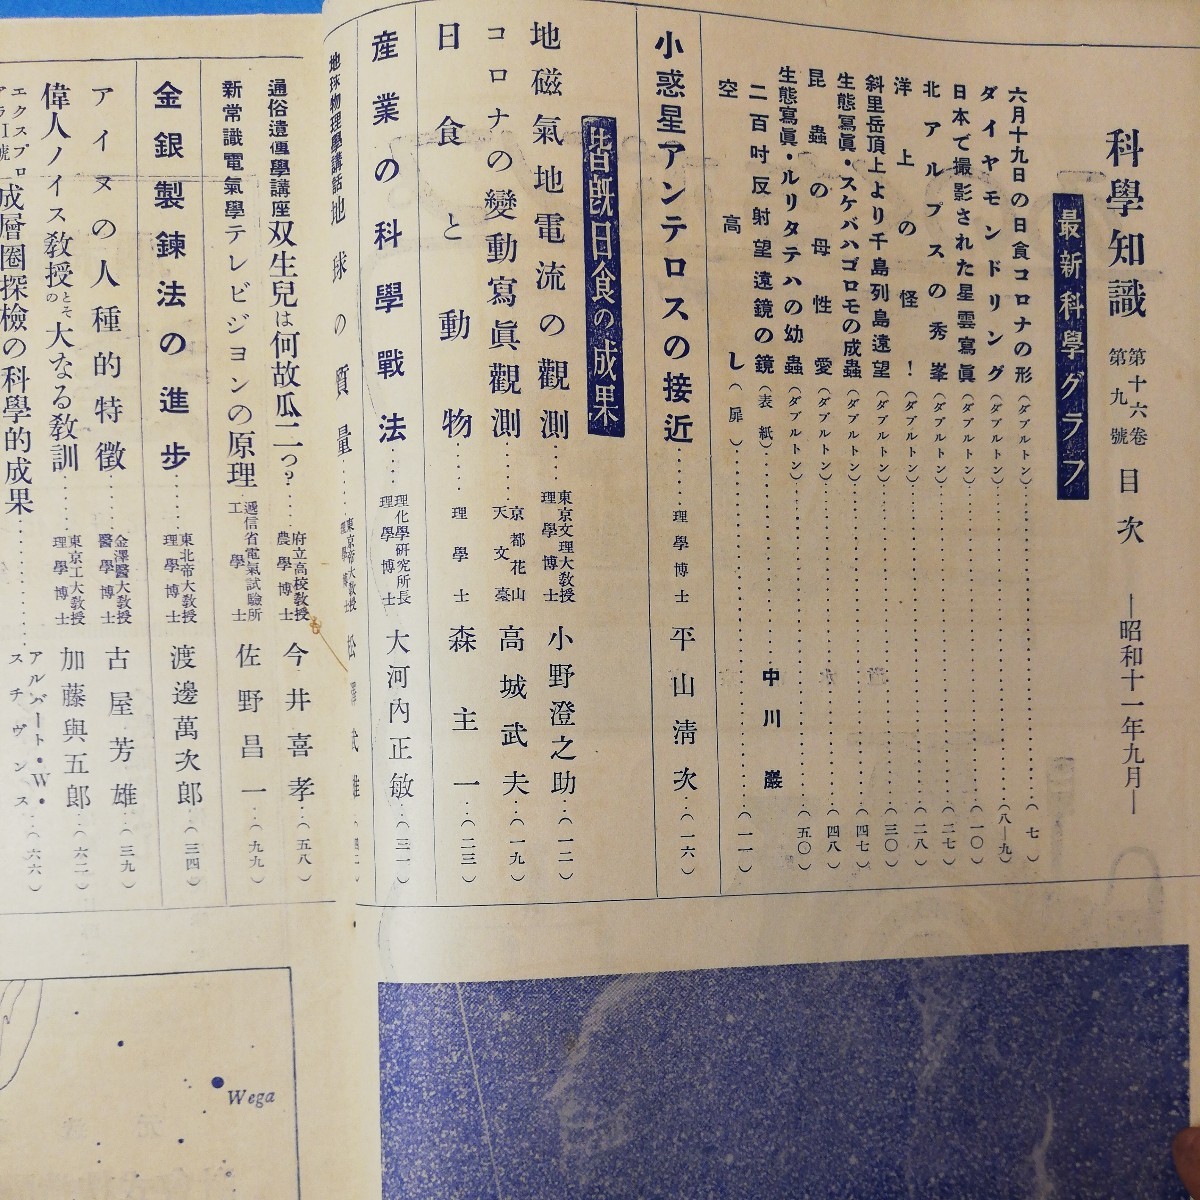 科學知識 第十六卷 第九號 目次 ―昭和十一年九月―
最新科學グラフ
六月十九日の日食コロナの形(ダブルトン)(七)
ダイヤモンドリング(ダブルトン)(八―九)
日本で撮影された星雲寫眞(ダブルトン)(一〇)
北アルプスの秀峯(ダブルトン)(二七)
洋上の怪!(ダブルトン)(二八)
斜里岳頂上より千島列島遠望(ダブルトン)(三〇)
生態寫眞・スケバハゴロモの成蟲(ダブルトン)(四七)
昆蟲の母性愛(ダブルトン)(四八)
生態寫眞・ルリタテハの幼蟲(ダブルトン)(五〇)
二百吋反射望遠鏡の鏡(表紙)中川巖
空高し(扉)(一一)
小惑星アンテロスの接近 理學博士 平山淸次(一六)
皆既日食の成果
地磁氣地電流の觀測 東京文理大敎授 理學博士 小野澄之助(一二)
コロナの變動寫眞觀測 京都花山天文臺 高城武夫(一九)
日食と動物 理學士 森主一(二三)
產業の科學戰法 理化學硏究所長 理學博士 大河內正敏(三一)
地球物理學講話 地球の質量 東京帝大敎授 理學博士 松澤武雄
通俗遺傳學講座 双生兒は何故瓜二つ? 府立高校敎授 農學博士 今井喜孝(五八)
新常識電氣學 テレビジョンの原理 遞信省電氣試驗所 工學士 佐野昌一(九九)
金銀製鍊法の進步 東北帝大敎授 理學博士 渡邊萬次郎(三四)
アイヌの人種的特徵 金澤醫大敎授 醫學博士 古屋芳雄(三九)
偉人ノイス敎授とその大なる敎訓 東京工大敎授 理學博士 加藤與五郎(六二)
エクスプロアラー號 成層圈探檢の科學的成果 アルバート・W・スチヴンス(六六)
Wega